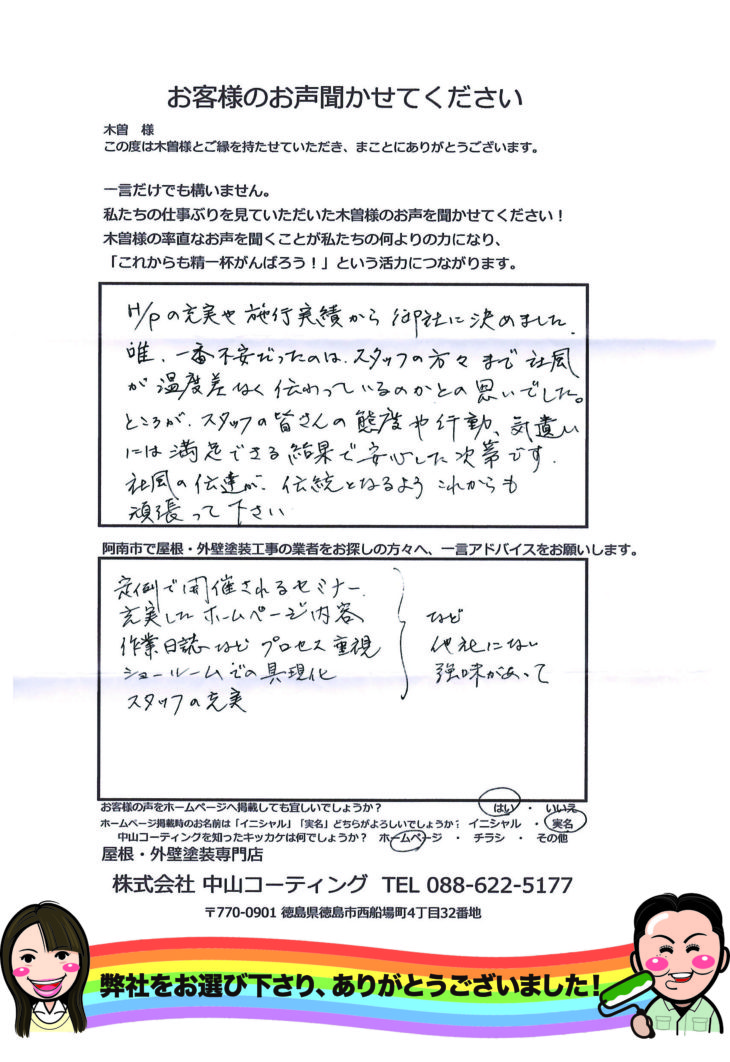 お客様のお声聞かせてください
木曽　様
この度は木曽様とご縁を持たせていただき、まことにありがとうございます。
一言だけでも構いません。
私たちの仕事ぶりを見ていただいた木曽様のお声を聞かせてください！
木曽様の率直なお声を聞くことが私たちの何よりの力になり、
「これからも精一杯がんばろう！」という活力につながります。
H/Pの充実や施行実績から御社に決めました.
唯、一番不安だったのは、スタッフの方々まで社風
が温度差なく伝わっているのかとの思いでした。
ところが、スタッフの皆さんの態度や行動、気遣い
には満足できる結果で安心した次第です.
社風の伝達が、伝統となるよう これからも
頑張って下さい
阿南市で屋根・外壁塗装工事の業者をお探しの方々へ、一言アドバイスをお願いします。
定例で開催されるセミナー
充実したホームページ内容
作業日誌など プロセス重視
ショールームでの具現化
スタッフの充実
など
他社にない
強味があって
お客様の声をホームページへ掲載しても宜しいでしょうか？　はい ・ いいえ
ホームページ掲載時のお名前は「イニシャル」「実名」どちらがよろしいでしょうか？ イニシャル ・ 実名
中山コーティングを知ったキッカケは何でしょうか？ ホームページ ・ チラシ ・ その他
屋根・外壁塗装専門店
株式会社 中山コーティング TEL 088-622-5177
〒770-0901 徳島県徳島市西船場町4丁目32番地
弊社をお選び下さり、ありがとうございました！